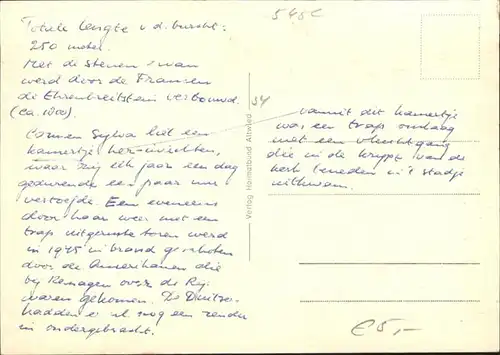 545C
Totale lengte v.d. burcht:
250 meter.
Met de stenen ervan
werd door de Fransen
de Ehrenbreitstein verbouwd.
(ca. 1800).
Carmen Sylva liet een
kamertje her-inrichten,
waar zij elk jaar een dag
gedurende een paar uur
vertoefde. Een eveneens
door haar weer met een
trap uitgeruste toren werd
in 1945 in brand geschoten
door de Amerikanen die
bij Remagen over de Rijn
waren gekomen. De Duitsers
hadden er nl. nog een zender
in ondergebracht.
34
Verlag Hormatbund Altwied
vanuit dit kamertje
was een trap omlaag
met een vluchtgang
die in de krypt van de
kerk beneden in 't stadje
uitkwam.
€5,-